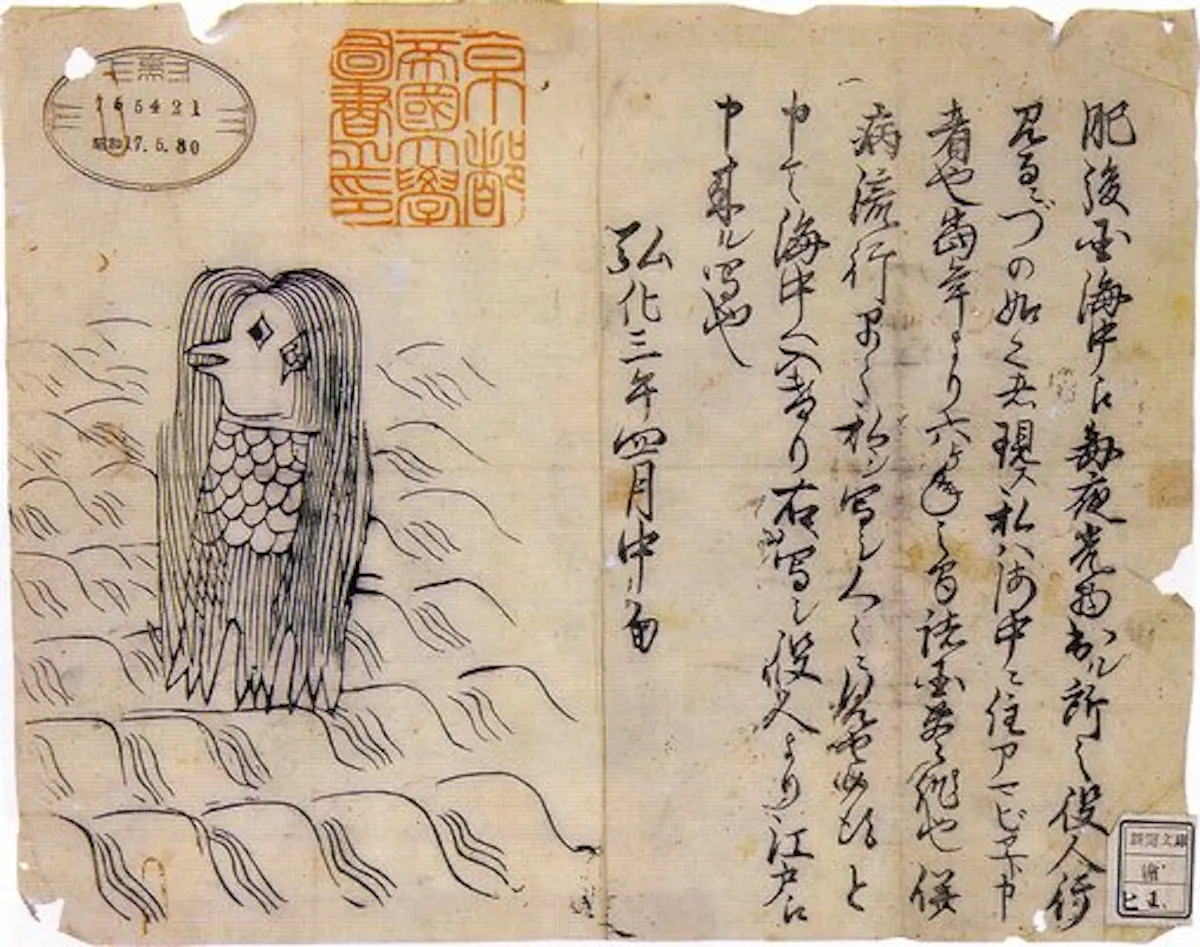 肥後国海中江毎夜光物出ル所之役人行
見るニづの如之者現ス私ハ海中ニ住アマビヱト申
者也当年より六ヶ年之間諸国豊作也併
病流行早々私ヲ写シ人々ニ見セ候得と
申て海中へ入けり右写シ役人より江戸江
申来ル写也
弘化三年四月中旬
京都
帝國大學
圖書之印
昭和17.5.30
新聞文庫
繪
ヒ 1.